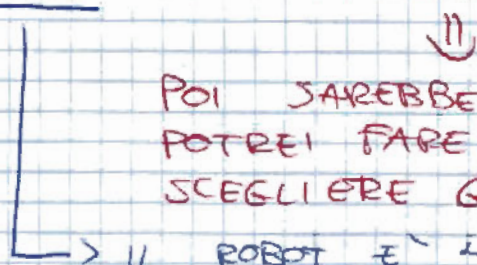 POI SAREBBE
POTREI FARE
SCEGLIERE G
" ROBOT E`